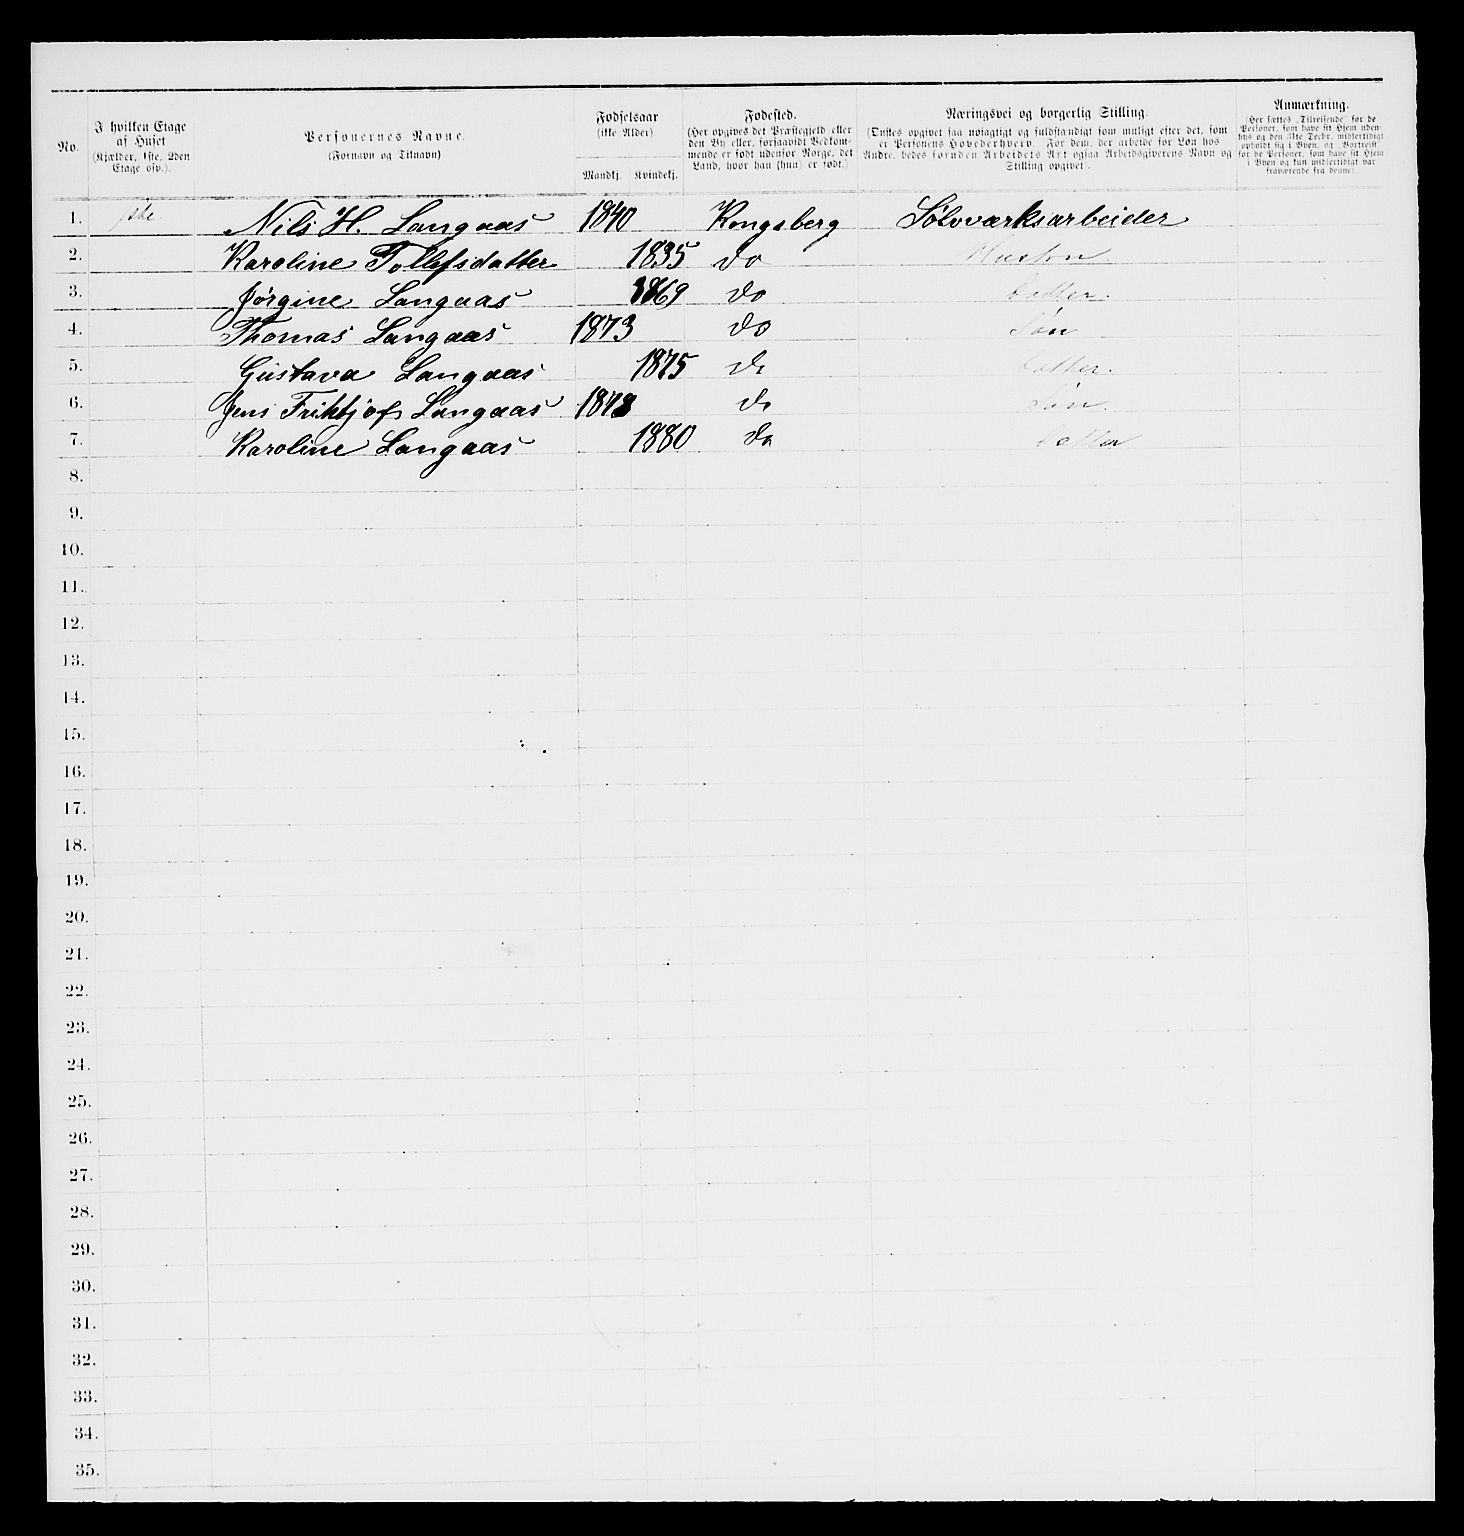 No. I hvilken Etage af Huset (Kjælder, 1ste, 2den Etage osv.). Personernes Navne. (Fornavn og Tilnavn) Fødselsaar (ikke Alder). Mandkj. Kvindekj. Fødested. (Her opgives det Præstegjeld eller den By eller, forsaavidt Vedkommende er født udenfor Norge, det Land, hvor han (hun) er født.) Næringsvei og borgerlig Stilling. (Ønskes opgivet saa nøiagtigt og fuldstændigt som muligt efter det, som er Personens Hovederhverv. For dem, der arbeide for Løn hos Andre, bedes foruden Arbeidets Art ogsaa Arbeidsgiverens Navn og Stilling opgivet). Anmærkning. (Her sættes „Tilreisende" for de Personer, som have sit Hjem udenbys og den 31te Decbr. midlertidigt opholdt sig i Byen, og „Bortreist" for de Personer, som have sit Hjem i Byen og kun midlertidigt var fraværende fra denne).
1. 1ste Nils H. Langaas 1840 Kongsberg Sølvværksarbeider
2. Karoline Tollefsdatter 1835 do Hustru.
3. Jørgine Langaas 1869 do Datter.
4. Thomas Langaas 1873 do Søn
5. Gustava Langaas 1875 do Datter.
6. Jens Frithjof Langaas 1878 do Søn.
7. Karoline Langaas 1880 do Datter
8.
9.
10.
11.
12.
13.
14.
15.
16.
17.
18.
19.
20.
21.
22.
23.
24.
25.
26.
27.
28.
29.
30.
31.
32.
33.
34.
35.